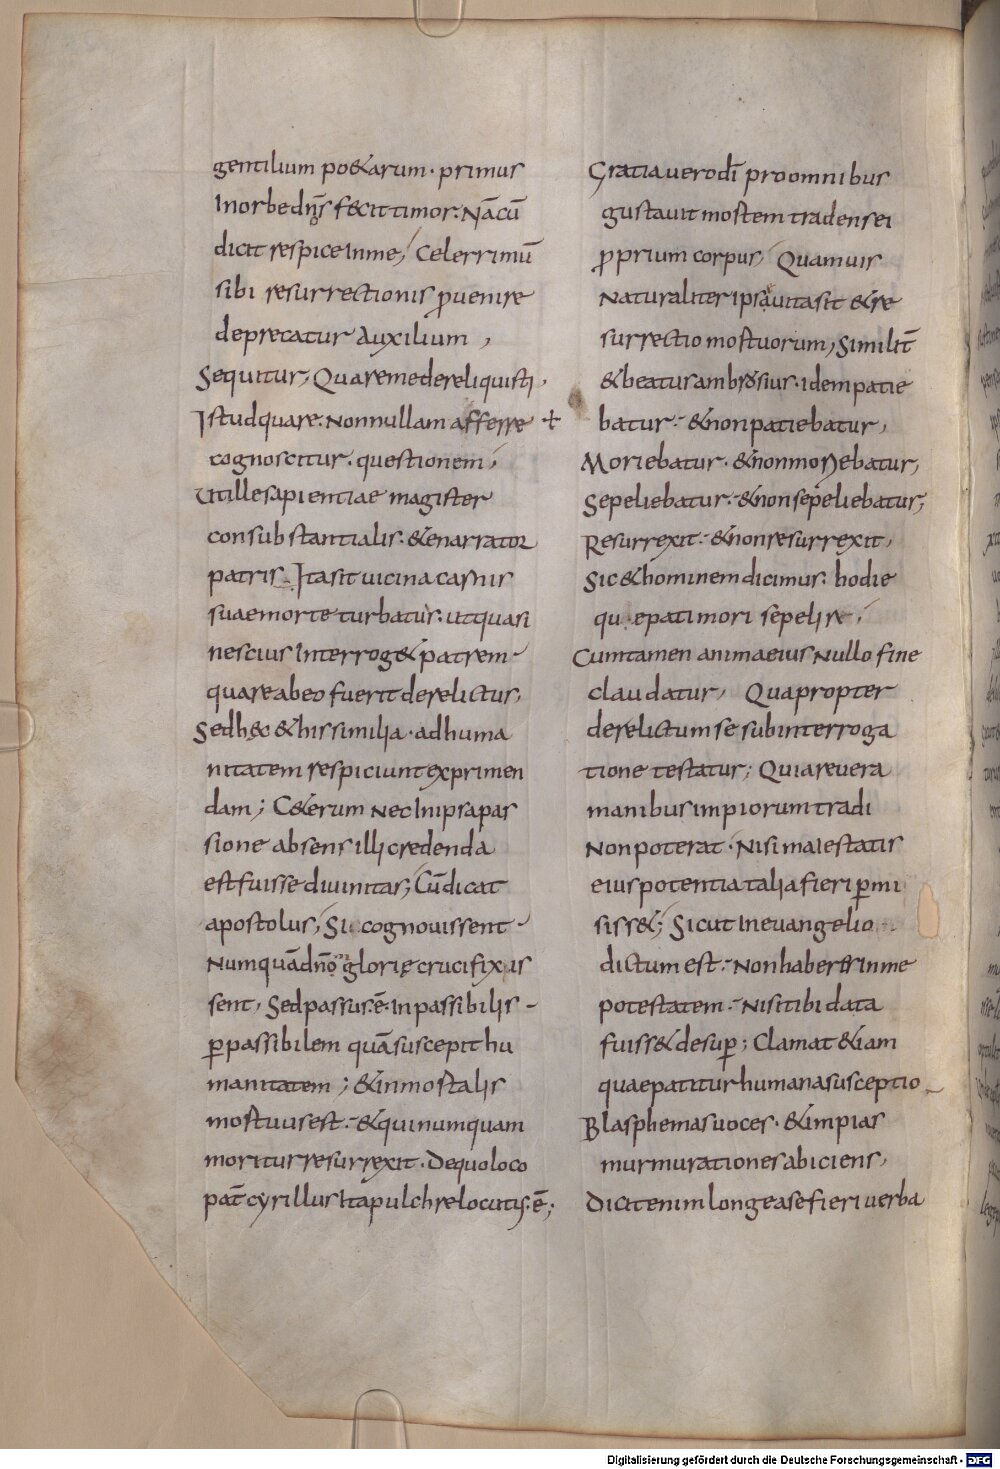 gentilium po&arum· primus
Inorbe dn̄s fecit timor. Nā cū
dicit respice In me; Celerrimū
sibi resurrectionis ꝓuenire
deprecatur Auxilium ;
Sequitur; Quare me dereliquisti·
Istud quare. Non nullam afferre
cognoscitur· questionem;
Ut ille sapientiae magister
consubstantialis· & enarrator
patris. Ita sit uicina carnis
suae morte turbatus· ut quasi
nescius Interrog& patrem·
quare ab eo fuerit derelictus,
Sed hęc & his similia· ad huma
nitatem respiciunt exprimen
dam; C&erum Nec In ipsa pas
sione absens illi credenda
est fuisse diuinitas; Cū dicat
apostolus; Si cognouissent·
Numquā dn̄o glorię crucifixis
sent, Sed passus ē· Inpassibilis -
ꝑ passibilem quā suscepit hu
manitatem ; & inmortalis
mortuus est·- & qui numquam
moritur resurrexit· De quo loco
pat̄ cyrillus Ita pulchre locutus· ē;
Gratia uero dī pro omnibus
gustauit mortem tradens ei
ꝓprium corpus; Quamuis
Naturaliter ipsa uita sit & re
surrectio mortuorum; Similit̄
& beatus ambrosius· idem patie
batur·- & non patiebatur,
Moriebatur· & non moriebatur,
Sepeliebatur·- & non sepeliebatur;
Resurrexit·- & non resurrexit,
Sic & hominem dicimus· hodie
que pati mori sepelire;
Cum tamen anima eius Nullo fine
claudatur, Quapropter
derelictum se sub interroga
tione testatur; Quia reuera
manibus impiorum tradi
Non poterat· Nisi maiestatis
eius potentia talia fieri ꝑmi
siss&; Sicut In euangelio
dictum est·- Non haberes In me
potestatem·- Nisi tibi data
fuiss& desuꝑ; Clamat & iam
quae patitur humana susceptio
Blasphemas uoces· & impias
murmurationes abiciens,
Dicit enim longe a se fieri uerba
Digitalisierung gefördert durch die Deutsche Forschungsgemeinschaft - DFG